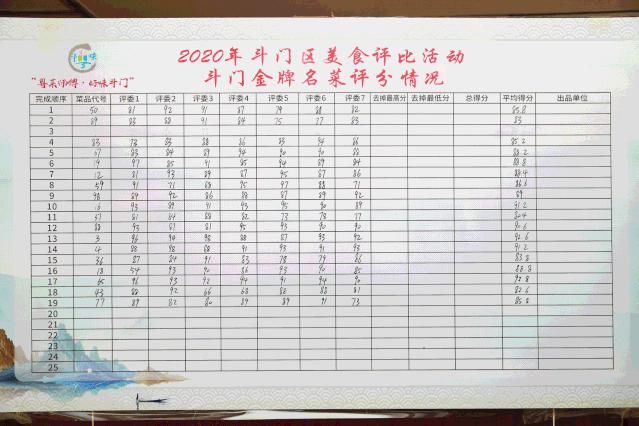 2020年斗门区美食评比活动
斗门金牌名菜评分情况
"粤菜师傅·好味斗门"
完成顺序 菜品代号 评委1 评委2 评委3 评委4 评委5 评委6 评委7 去掉最高分 去掉最低分 总得分 平均得分 出品单位
1 50 81 92 91 87 79 88 82 85.8
2 89 83 88 91 84 75 77 83 83
3
4 83 78 83 88 86 83 94 86 85.2
5 67 83 84 89 94 90 90 88 88.2
6 19 97 85 91 85 94 89 84 88.8
7 12 81 93 89 87 95 87 86 88.4
8 59 91 71 68 95 97 88 71
9 98 89 92 86 88 87 89 92 89
10 93 89 91 93 95 90 89 91.2
11 37 81 84 88 82 73 78 77 80.4
12 88 93 87 81 95 93 90 90 90.6
13 3 96 94 98 88 87 93 92 92.6
14 4 88 98 88 91 93 91 93 91.2
15 36 87 84 91 83 78 79 86 83.8
16 18 54 93 90 86 93 90 85 88.8
17 65 96 93 92 94 91 94 90 92.8
18 43 88 92 66 68 86 88 81 82.6
19 77 89 82 80 89 89 91 73 85.8
20
21
22
23
24
25